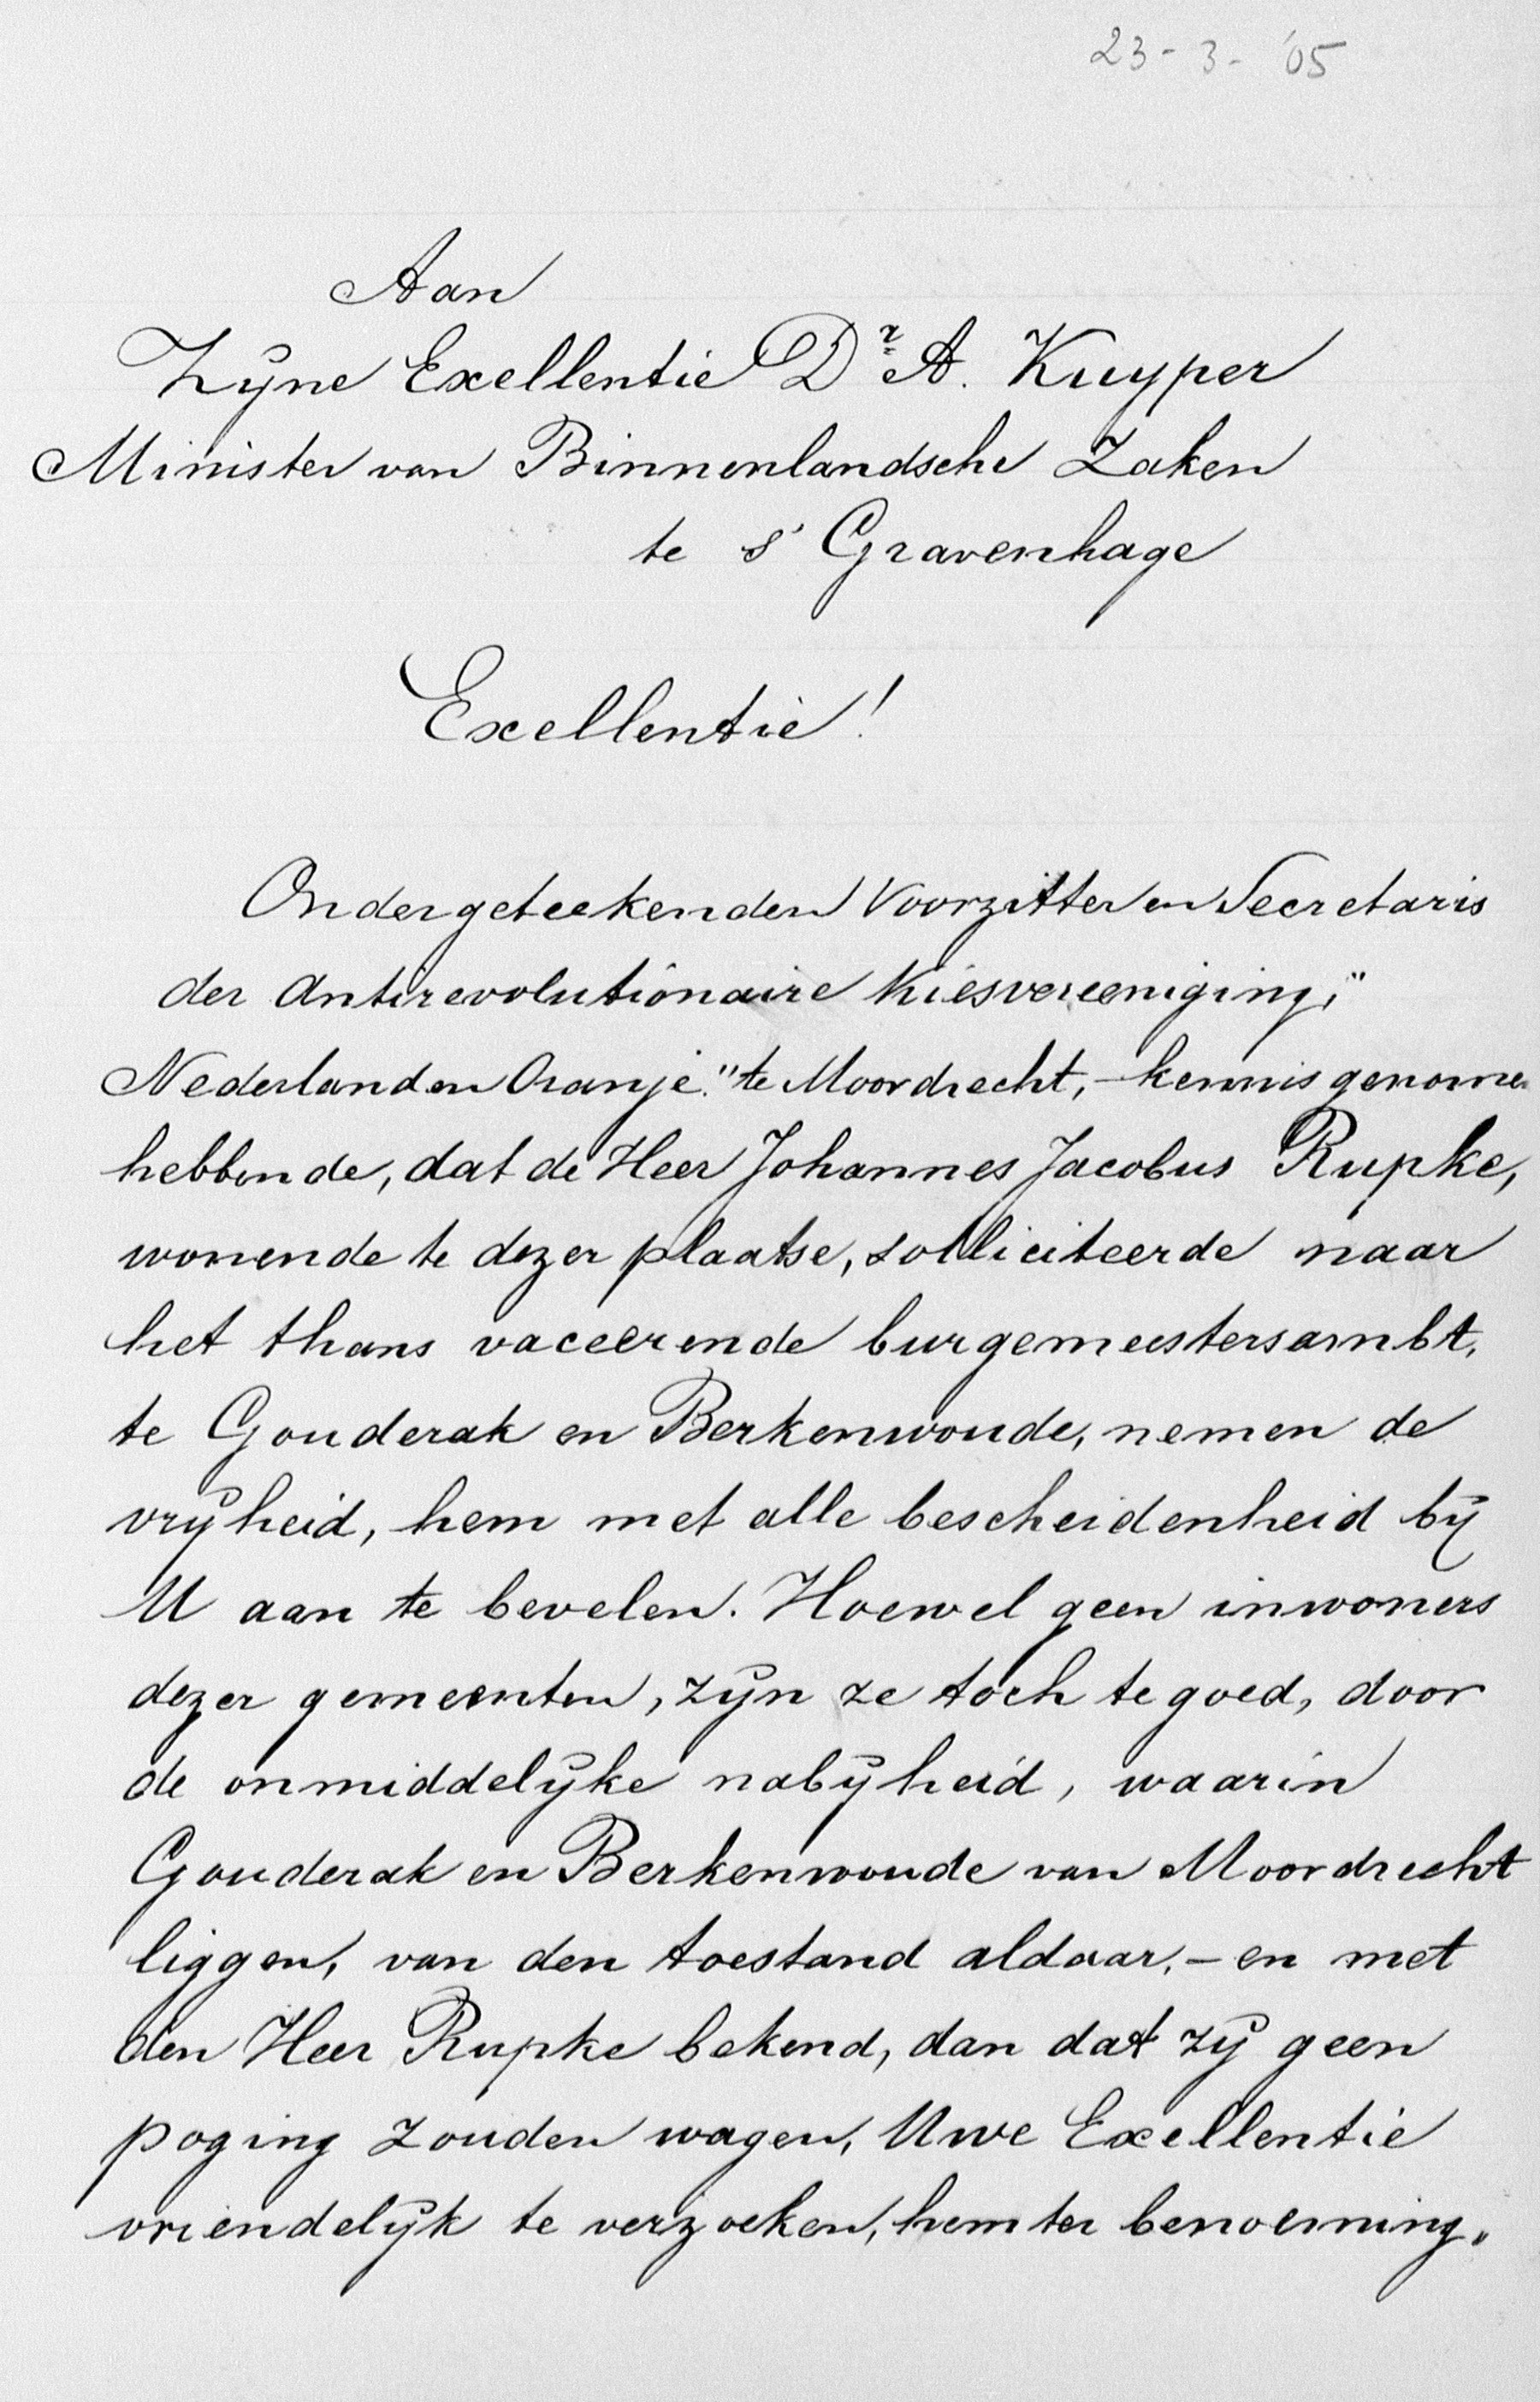 23-3-'05
Aan
Zijne Exellentie Dr A. Kuyper
Minister van Binnenlandsche Zaken
te s' Gravenhage
Exellentie!
Ondergeteekenden Voorzitter en Secretaris
der Antirevolutionaire Kiesvereeniging,"
Nederland en Oranje." te Moordrecht, - kennis genomen
hebbende, dat de Heer Johannes Jacobus Rupke,
wonende te dezer plaatse, solliciteerde naar
het thans vaceerende burgemeestersambt,
te Gouderak en Berkenwoude, nemen de
vrijheid, hem met alle bescheidenheid bij
U aan te bevelen. Hoewel geen inwoners
dezer gemeenten, zijn ze toch te goed, door
de onmiddelijke nabijheid, waarin
Gouderak en Berkenwoude van Moordrecht
liggen, van den toestand aldaar, - en met
den Heer Rupke bekend, dan dat zij geen
poging zouden wagen, Uwe Exellentie
vriendelijk te verzoeken, hem ter benoeming„